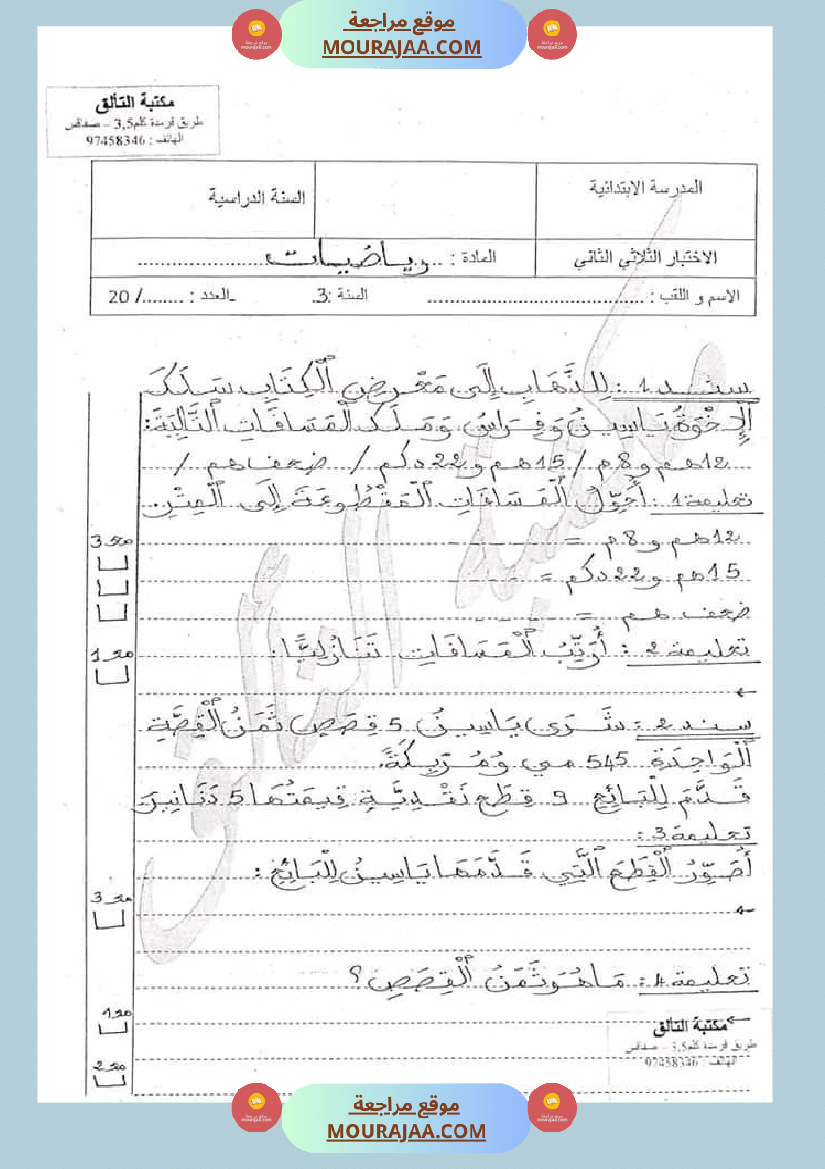 موقع مراجعة
MOURAJAA.COM
مكتبة التألق
طريق قرمدة كلم3,5 – صفاقس
الهاتف : 97458346
المدرسة الابتدائية
السنة الدراسية
الاختبار الثلاثي الثاني
المادة : رياضيات
الاسم و اللقب :
السنة :3
العدد : ......../ 20
سند 1 : لِلذَّهَابِ إِلَى مَعْرِضِ ٱلْكِتَابِ سَلَكَ
ٱلْإِخْوَةُ يَاسِينُ وَفِرَاسُ وَمَلَك ٱلْمَسَافَاتِ ٱلتَّالِيَةَ:
12هم و 8م / 15هم و 22دكم / ضعف هم /
تعليمة 1 : أُحَوِّلُ ٱلْمَسَافَاتِ ٱلْمَقْطُوعَةَ إِلَى ٱلْمِتْرِ.
12هم و 8م =
مع3
15هم و 22دكم =
ضعف هم =
تعليمة 2 : أُرَتِّبُ ٱلْمَسَافَاتِ تَنَازُلِيًّا :
مع1
سند 2 : شَرَى يَاسِينُ 5 قِصَصٍ ثَمَنُ ٱلْقِصَّةِ
ٱلْوَاحِدَةِ 545 مي وَمُرَبِكَةً.
قَدَّمَ لِلْبَائِعِ 9 قِطَعٍ نَقْدِيَّةٍ قِيمَتُهَا 5 دَنَانِيرَ
تعليمة 3 :
أُصَوِّرُ ٱلْقِطَعَ ٱلَّتِي قَدَّمَهَا يَاسِينُ لِلْبَائِعِ :
مع3
تعليمة 4 : مَا هُوَ ثَمَنُ ٱلْقِصَصِ ؟
مع1
مكتبة التألق
طريق قرمدة كلم3,5 – صفاقس
الهاتف : 97458346
مع2
موقع مراجعة
MOURAJAA.COM